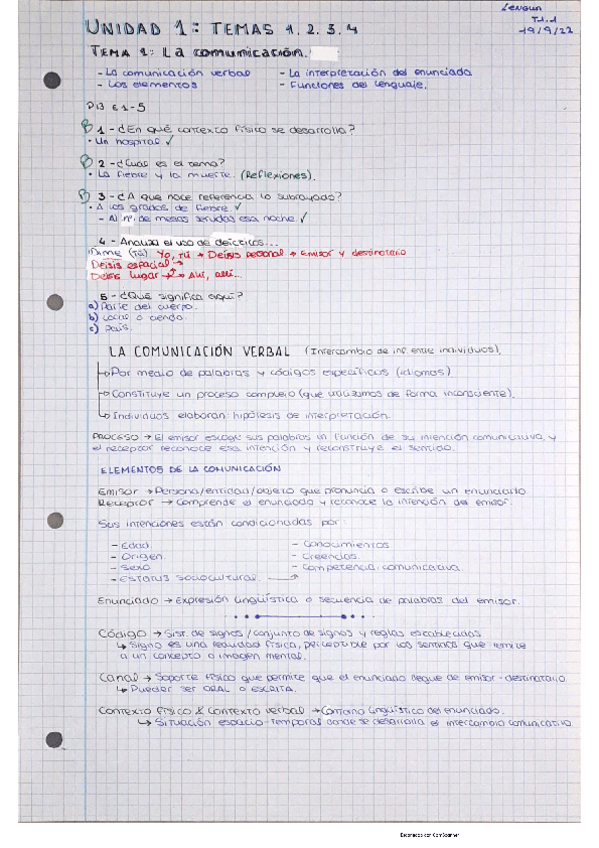 Lengua
T.1.1
19/9/22
UNIDAD 1: TEMAS 1.2.3.4
TEMA 1: La comunicación.
- La comunicación verbal
- La interpretación del enunciado
- Los elementos
- Funciones del lenguaje.
P13 E1-5
B 1 - ¿En qué contexto físico se desarrolla?
• Un hospital ✓
B 2 - ¿Cuál es el tema?
• La fiebre y la muerte. (Reflexiones).
B 3 - ¿A que hace referencia lo subrayado?
• A los grados de fiebre ✓
- Al nº. de mesas servidas esa noche ✓
4 - Analiza el uso de deícticos...
Dime (Tú) Yo, tú → Deixis personal → Emisor y destinatario
Deixis espacial
Deixis lugar → Ahí, allí...
5 - ¿Qué significa aquí?
a) Parte del cuerpo.
b)
c) País.
LA COMUNICACIÓN VERBAL (Intercambio de inf. entre individuos).
→ Por medio de palabras y códigos específicos (idiomas)
→ Constituye un proceso complejo (que utilizamos de forma inconsciente).
→ Individuos elaboran hipótesis de interpretación.
PROCESO → El emisor escoge sus palabras en función de su intención comunicativa, y
el receptor reconoce esa intención y reconstruye el sentido.
ELEMENTOS DE LA COMUNICACIÓN
Emisor → Persona/entidad/objeto que pronuncia o escribe un enunciado
Receptor → Comprende el enunciado y reconoce la intención del emisor.
Sus intenciones están condicionadas por:
- Edad.
- Conocimientos
- Origen.
- Creencias.
- Sexo
- Competencia comunicativa.
- Estatus sociocultural. →
Enunciado → Expresión lingüística o secuencia de palabras del emisor.
Código → Sist. de signos / conjunto de signos y reglas establecidas
↳ Signo es una realidad física, perceptible por los sentidos que remite
a un concepto o imagen mental.
Canal → Soporte físico que permite que el enunciado llegue de emisor-destinatario
↳ Pueden ser ORAL o ESCRITA.
Contexto físico & contexto verbal → Contorno lingüístico del enunciado.
↳ Situación espacio-temporal donde se desarrolla el intercambio comunicativo
Escaneado con CamScanner